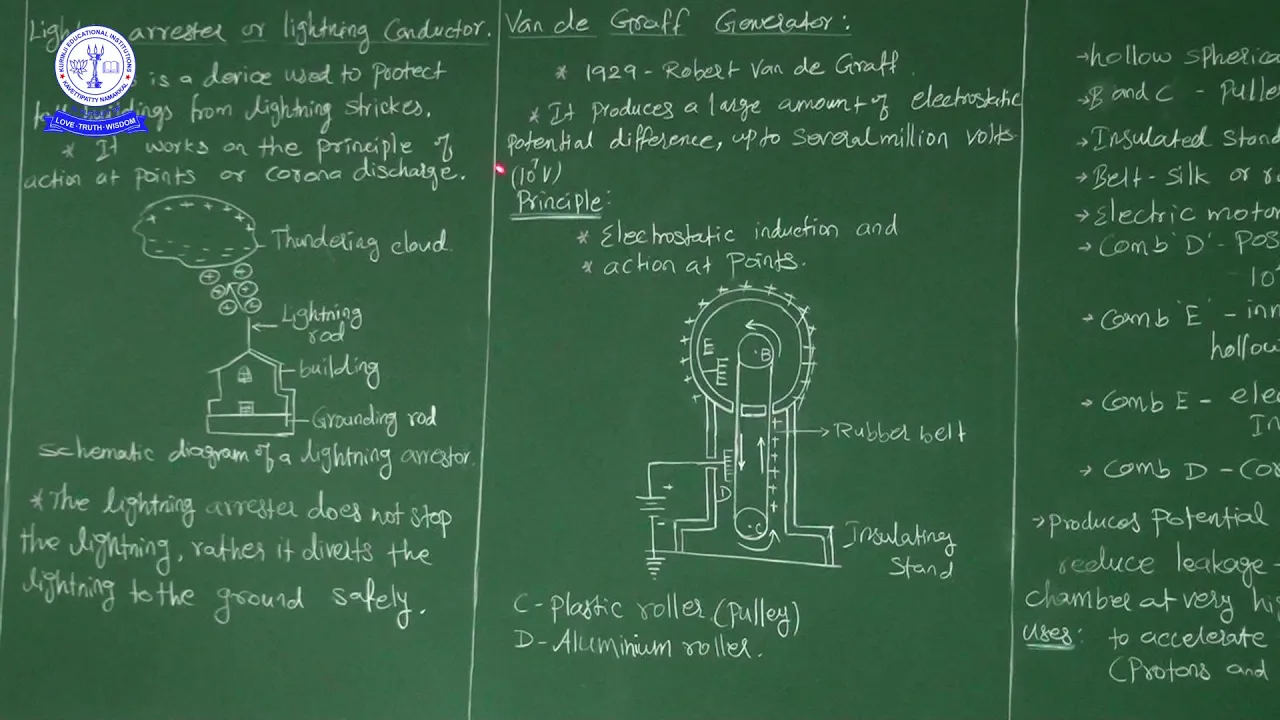 KURINJI EDUCATIONAL INSTITUTIONS
KAVETTIPATTY NAMAKKAL
LOVE · TRUTH · WISDOM
arrester or lightning Conductor.
is a device used to protect
buildings from lightning strickes.
* It works on the principle of
action at points or corona discharge.
Thundering cloud
Lightning
rod
building
Grounding rod
schematic diagram of a lightning arrestor.
* The lightning arrester does not stop
the lightning, rather it diverts the
lightning to the ground safely.
Van de Graff Generator:
* 1929 - Robert Van de Graff.
* It produces a large amount of electrostatic
potential difference, up to several million volts
(10⁷V)
Principle:
* Electrostatic induction and
* action at points.
B
E
Rubber belt
D
C
Insulating
Stand
C - plastic roller (pulley)
D - Aluminium roller.
→ hollow spherica
→ B and C - pulle
→ Insulated Stand
→ Belt - Silk or
→ Electric motor
→ Comb 'D' - Pos
10
→ Comb 'E' - inn
hollow
→ Comb E - elec
In
→ Comb D - Co
→ produces potential
reduce leakage -
chamber at very hi
uses: to accelerate
(Protons and